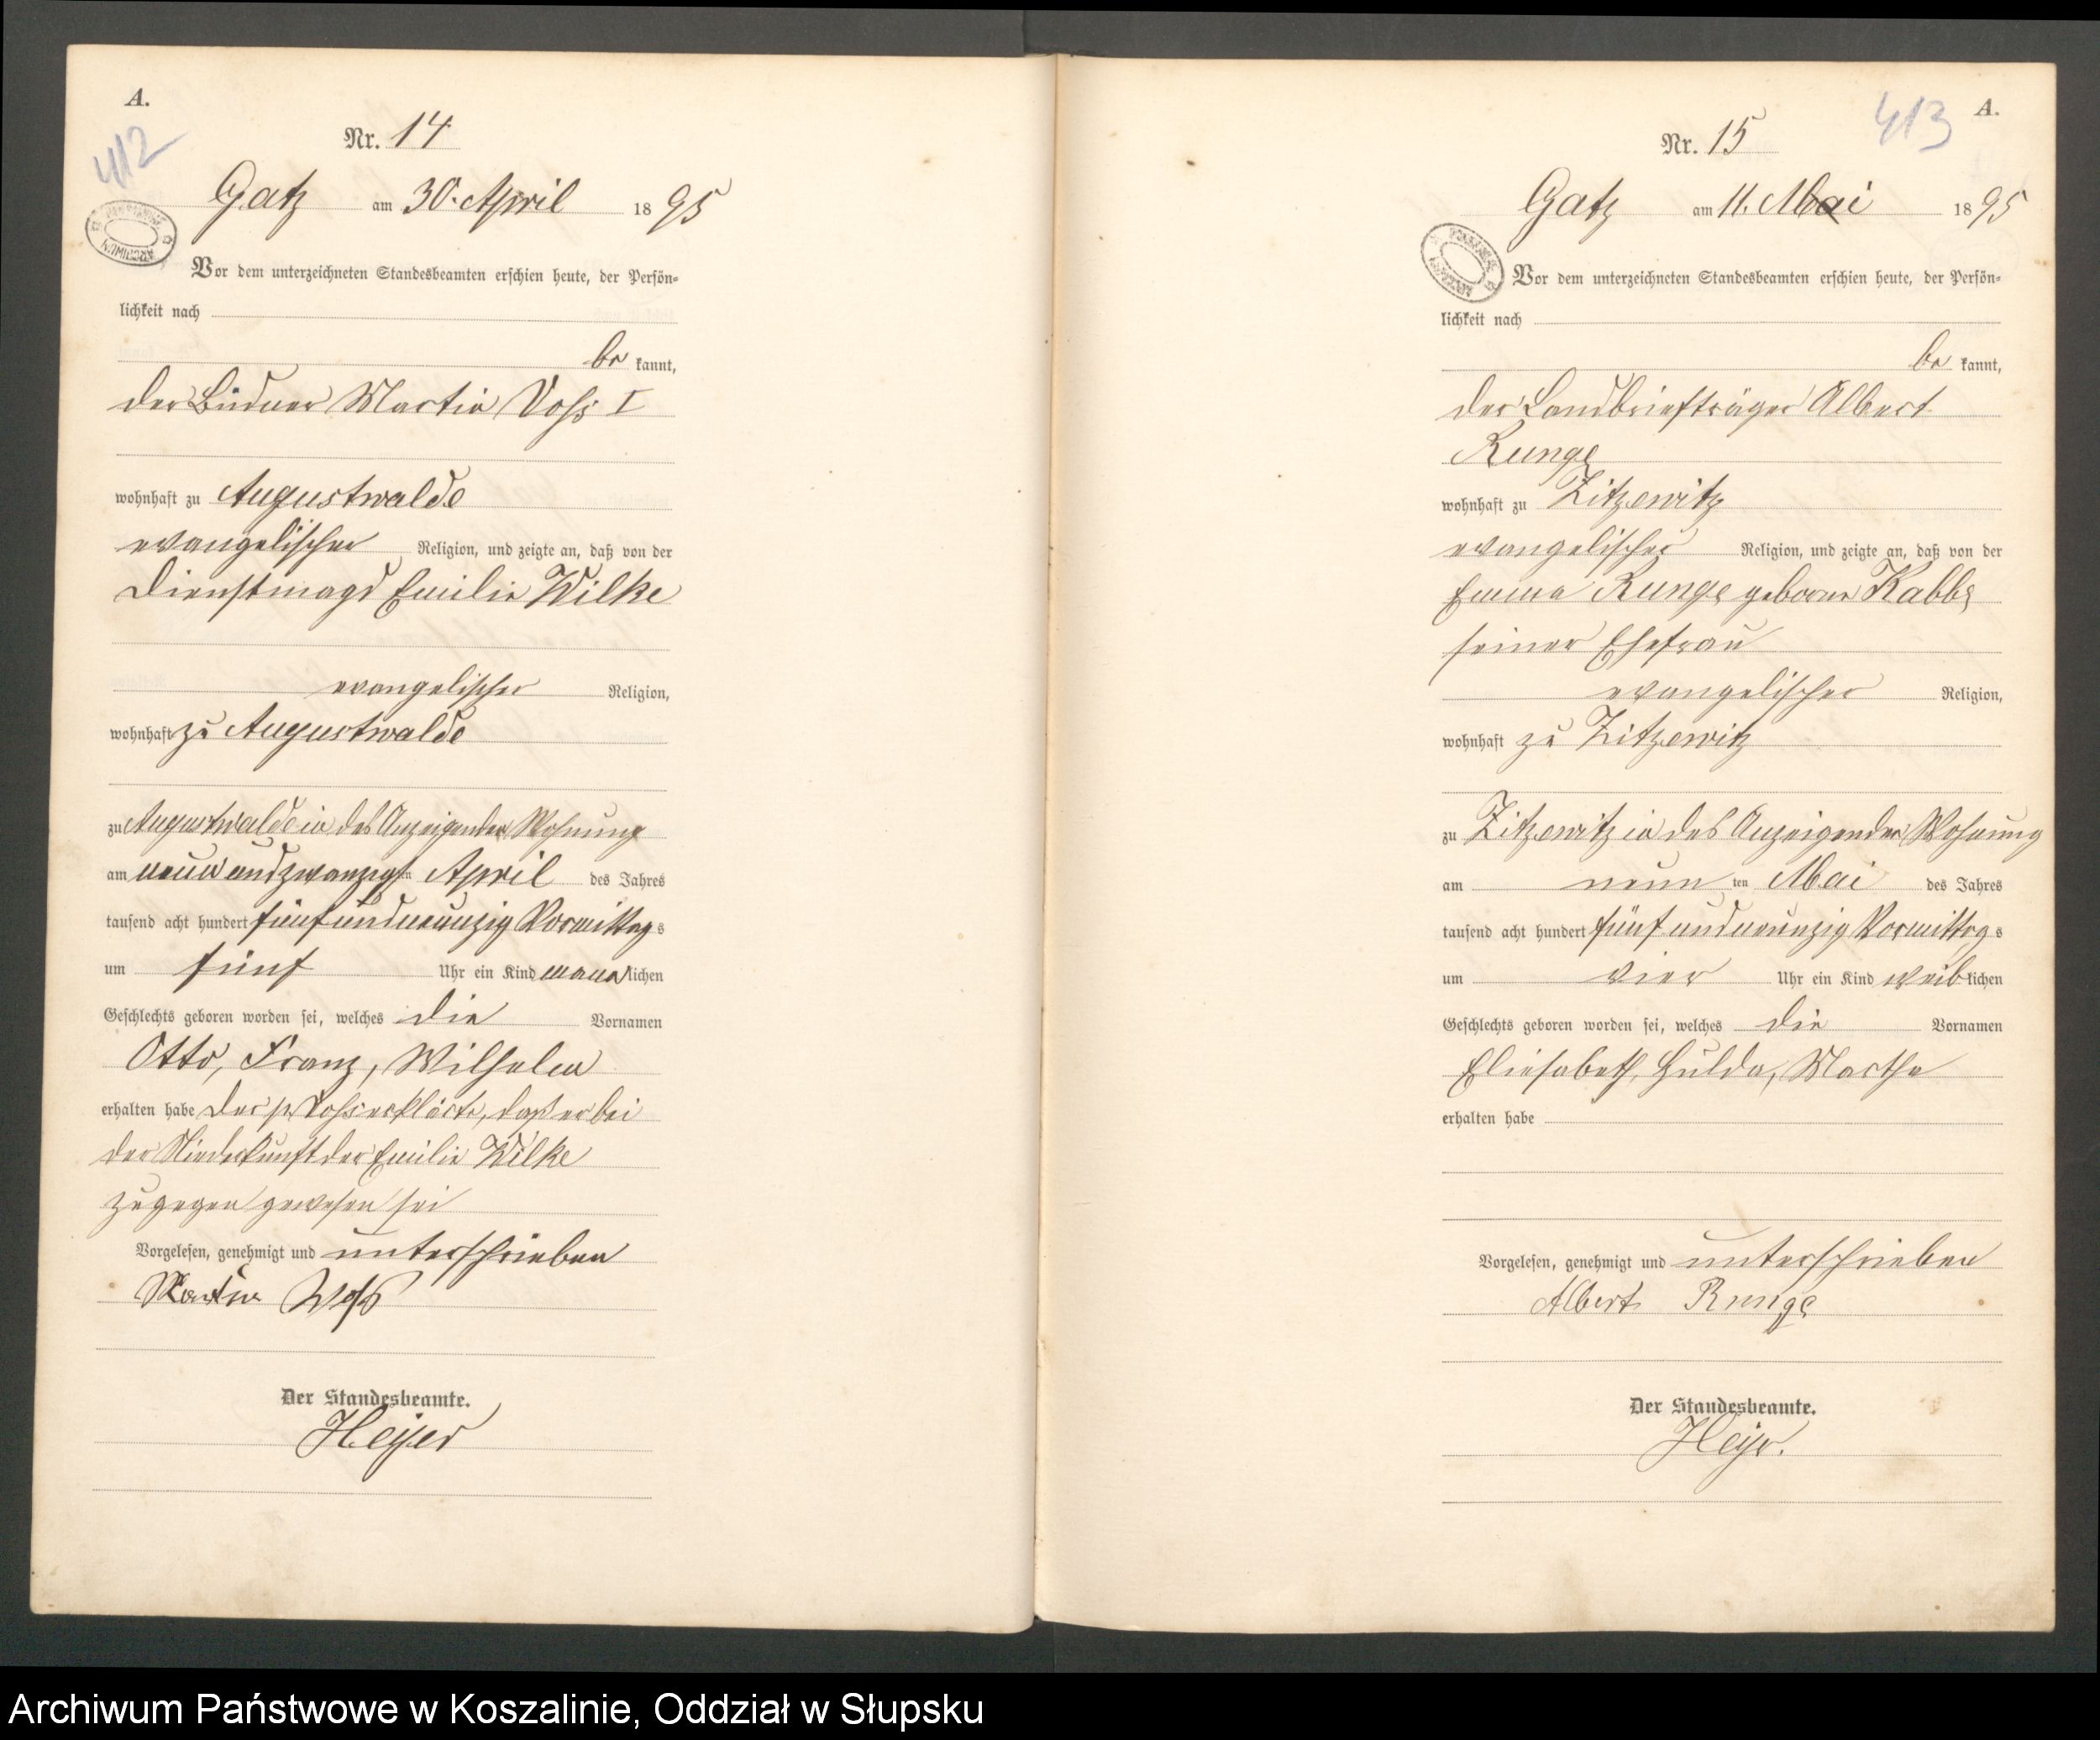 A.
412
Nr. 14
Gatz am 30. April 1895
Vor dem unterzeichneten Standesbeamten erschien heute, der Persön-
lichkeit nach
be kannt,
der Büdner Martin Voß I
wohnhaft zu Augustwalde
evangelischer Religion, und zeigte an, daß von der
Dienstmagd Emilie Wilke
evangelischer Religion,
wohnhaft zu Augustwalde
zu Augustwalde in des Anzeigenden Wohnung
am neun und zwanzigsten April des Jahres
tausend acht hundert fünf und neunzig Vormittags
um fünf Uhr ein Kind männlichen
Geschlechts geboren worden sei, welches die Vornamen
Otto, Franz, Wilhelm
erhalten habe der p Voß erklärte, daß er bei
der Niederkunft der Emilie Wilke
zugegen gewesen sei
Vorgelesen, genehmigt und unterschrieben
Martin Voß
Der Standesbeamte.
Heyer
A.
413
Nr. 15
Gatz am 11. Mai 1895
Vor dem unterzeichneten Standesbeamten erschien heute, der Persön-
lichkeit nach
be kannt,
der Landbriefträger Albert
Runge
wohnhaft zu Zitzewitz
evangelischer Religion, und zeigte an, daß von der
Emma Runge geborne Kabbe
seiner Ehefrau
evangelischer Religion,
wohnhaft zu Zitzewitz
zu Zitzewitz in des Anzeigenden Wohnung
am neun ten Mai des Jahres
tausend acht hundert fünf und neunzig Vormittags
um vier Uhr ein Kind weiblichen
Geschlechts geboren worden sei, welches die Vornamen
Eliesabeth, Hulda, Marthe
erhalten habe
Vorgelesen, genehmigt und unterschrieben
Albert Runge
Der Standesbeamte.
Heyer.
Archiwum Państwowe w Koszalinie, Oddział w Słupsku